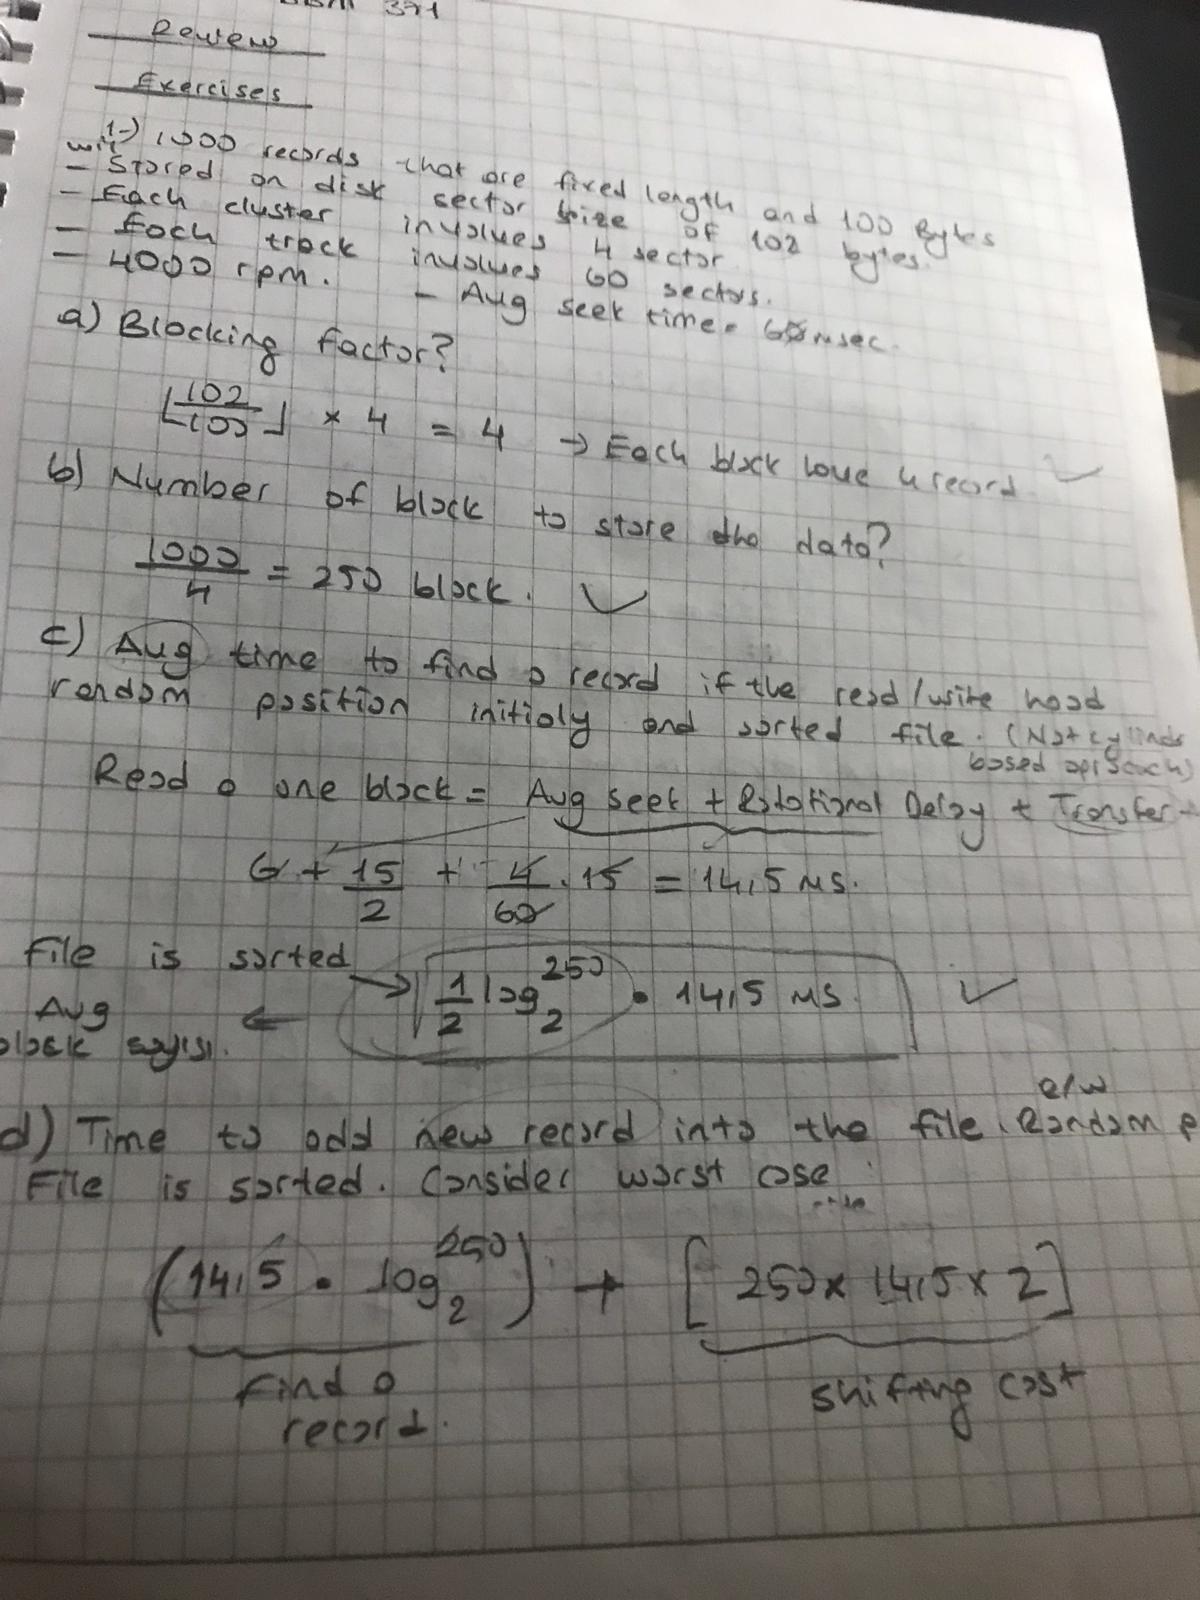 BBM 371
Review
Exercises
1-) 1000 records that are fixed length and 100 Bytes
with
- Stored on disk sector size of 102 bytes.
- Each cluster involves 4 sector
- Each track involves 60 sectors.
- 4000 rpm. - Avg seek time = 6 msec.
a) Blocking factor?
⌊102/100⌋ × 4 = 4 → Each block have 4 record
b) Number of block to store the data?
1000/4 = 250 block.
c) Avg time to find a record if the read/write head
random position initialy and sorted file. (Not cylinder
based approach)
Read a one block = Avg seek + Rotational Delay + Transfer
6 + 15/2 + 4/60 . 15 = 14,5 ms.
File is sorted → 1/2 log₂ 250 • 14,5 ms
Avg ←
block sayısı.
d) Time to add new record into the file. Random p
r/w
File is sorted. Consider worst case
(14,5 • log₂ 250) + [250 x 14,5 x 2]
find a shifting cost
record.